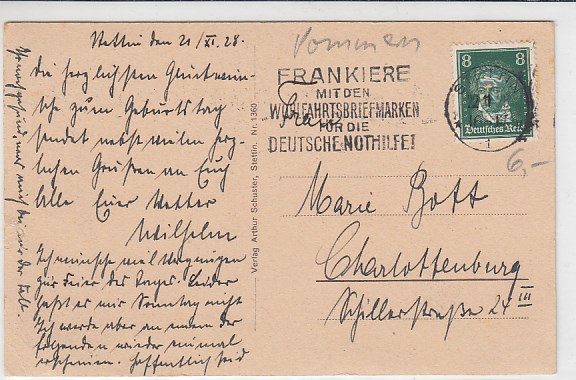 Stettin den 21/XI. 28.
Die herzlichsten Glückwün-
sche zum Geburtstag
sendet nebst vielen herz-
lichen Grüßen an Euch
alle Euer Vetter
Wilhelm
Ich wünsche viel Vergnügen
zur Feier des Tages. Leider
paßt es mir Sonntag nicht
Ich werde aber an einem der
folgenden wieder einmal
erscheinen. Hoffentlich seid
Ihr noch gesund, was auch bei mir der Fall.
Verlag Arthur Schuster, Stettin. Nr. 1360
Pommern
FRANKIERE
MIT DEN
WOHLFAHRTSBRIEFMARKEN
FÜR DIE
DEUTSCHE NOTHILFE!
8 8
Deutsches Reich
6,-
Frau
Marie Bott
Charlottenburg
Schillerstraße 24 III